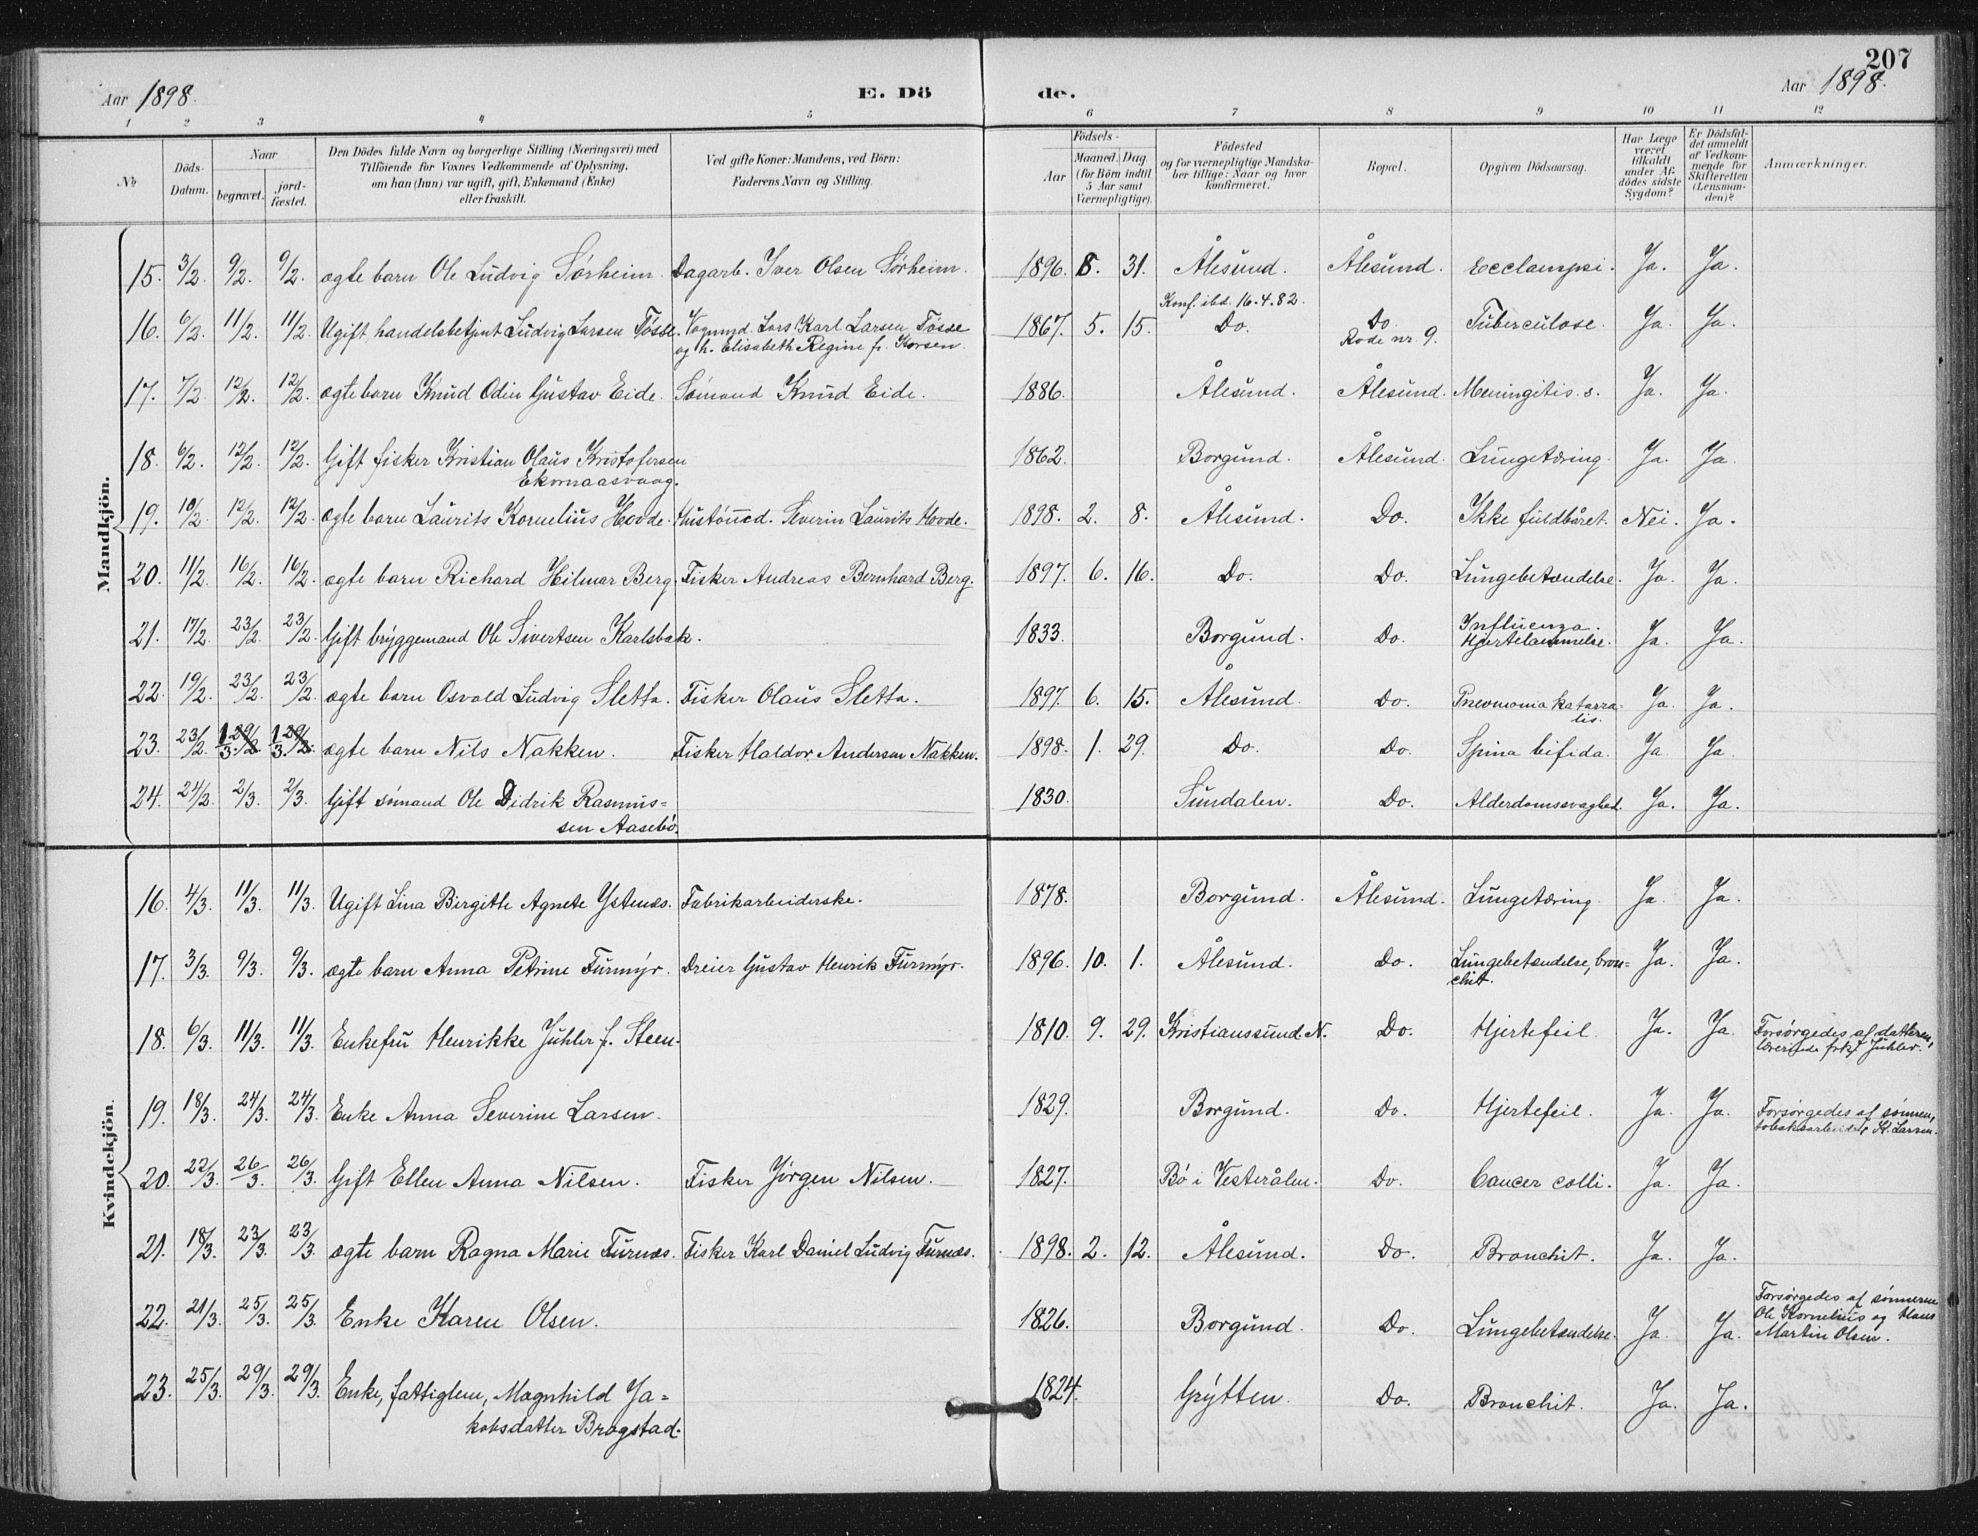 207
Aar 1898. E. Dö de. Aar 1898.
1 2 3 4 5 6 7 8 9 10 11 12
No. Döds-Datum. Naar begravet. jord-fæstet. Den Dödes fulde Navn og borgerlige Stilling (Næringsvei) med Tilföiende for Voxnes Vedkommende af Oplysning, om han (hun) var ugift, gift, Enkemand (Enke) eller fraskilt. Ved gifte Koner: Mandens, ved Börn: Faderens Navn og Stilling. Födsels- Aar Maaned. Dag (for Börn indtil 5 Aar samt Værnepligtige). Födested og for værnepligtige Mandskaber tillige: Naar og hvor konfirmeret. Bopæl. Opgiven Dödsaarsag. Har Læge været tilkaldt under Afdödes sidste Sygdom? Er Dödsfaldet anmeldt af Vedkommende for Skifteretten (Lensmanden)? Anmærkninger.
Mandkjön.
15. 3/2. 9/2. 9/2. ægte barn Ole Ludvig Sørheim. Dagarb. Iver Olsen Sørheim. 1896. 8. 31. Ålesund. Ålesund. Ecclampsi. Ja. Ja.
Konf. ibd. 16.4.82.
16. 6/2. 11/2. 11/2. Ugift handelsbetjent Ludvig Larsen Tøsse. Vognmd. Lars Karl Larsen Tøsse 1867. 5. 15. Do. Do. Tuberculose. Ja. Ja.
og h. Elisabeth Regine f. Korsen. Rode nr. 9.
17. 7/2. 12/2. 12/2. ægte barn Knud Odin Gustav Eide. Sømand Knud Eide. 1886. Ålesund. Ålesund. Meningitis. s. Ja. Ja.
18. 6/2. 12/2. 12/2. Gift fisker Kristian Olaus Kristofersen 1862. Borgund. Ålesund. Lungetæring. Ja. Ja.
Ekornaasvaag.
19. 10/2. 12/2. 12/2. ægte barn Laurits Kornelius Hovde. Hustømd. Severin Laurits Hovde. 1898. 2. 8. Ålesund. Do. Ikke fuldbåret. Nei. Ja.
20. 11/2. 16/2. 16/2. ægte barn Richard Hilmar Berg. Fisker Andreas Bernhard Berg. 1897. 6. 16. Do. Do. Lungebetændelse. Ja. Ja.
21. 17/2. 23/2. 23/2. Gift bryggemand Ole Sivertsen Karlsbak. 1833. Borgund. Do. Influenza. Hjertelammelse. Ja. Ja.
22. 19/2. 23/2. 23/2. ægte barn Osvald Ludvig Sletta. Fisker Olaus Sletta. 1897. 6. 15. Ålesund. Do. Pneumonia katarra- Ja. Ja.
lis.
23. 23/2. 1/3. 1/3. ægte barn Nils Nakken. Fisker Haldor Andersen Nakken. 1898. 1. 29. Do. Do. Spina bifida. Ja. Ja.
24. 24/2. 2/3. 2/3. Gift sømand Ole Didrik Rasmus= 1830. Sundalen. Do. Alderdomssvaghed. Ja. Ja.
sen Aasebø.
Kvindekjön.
16. 4/3. 11/3. 11/3. Ugift Lina Birgitte Agnete Ystenæs. Fabrikarbeiderske. 1878. Borgund. Ålesund. Lungetæring. Ja. Ja.
17. 3/3. 9/3. 9/3. ægte barn Anna Petrine Furmyr. Dreier Gustav Henrik Furmyr. 1896. 10. 1. Ålesund. Do. Lungebetændelse, bron= Ja. Ja.
chit.
18. 6/3. 11/3. 11/3. Enkefru Henrikke Juhler f. Steen. 1810. 9. 29. Kristianssund N. Do. Hjertefeil. Ja. Ja. Forsørgedes af datteren,
lærerinde frk. Juhler.
19. 18/3. 24/3. 24/3. Enke Anna Severine Larsen. 1829. Borgund. Do. Hjertefeil. Ja. Ja. Forsørgedes af sønnen,
tobaksarbeider K. Larsen.
20. 22/3. 26/3. 26/3. Gift Ellen Anna Nilsen. Fisker Jørgen Nilsen. 1827. Bø i Vesterålen. Do. Cancer colli. Ja. Ja.
21. 18/3. 23/3. 23/3. ægte barn Ragna Marie Furnæs. Fisker Karl Daniel Ludvig Furnæs. 1898. 2. 12. Ålesund. Do. Bronchit. Ja. Ja.
22. 21/3. 25/3. 25/3. Enke Karen Olsen. 1826. Borgund. Do. Lungebetændelse. Ja. Ja. Forsørgedes af sønnerne
Ole Kornelius og Hans
Martin Olsen.
23. 25/3. 29/3. 29/3. Enke, fattiglem, Magnhild Ja= 1824. Grytten. Do. Bronchit. Ja. Ja.
kobsdatter Bragstad.